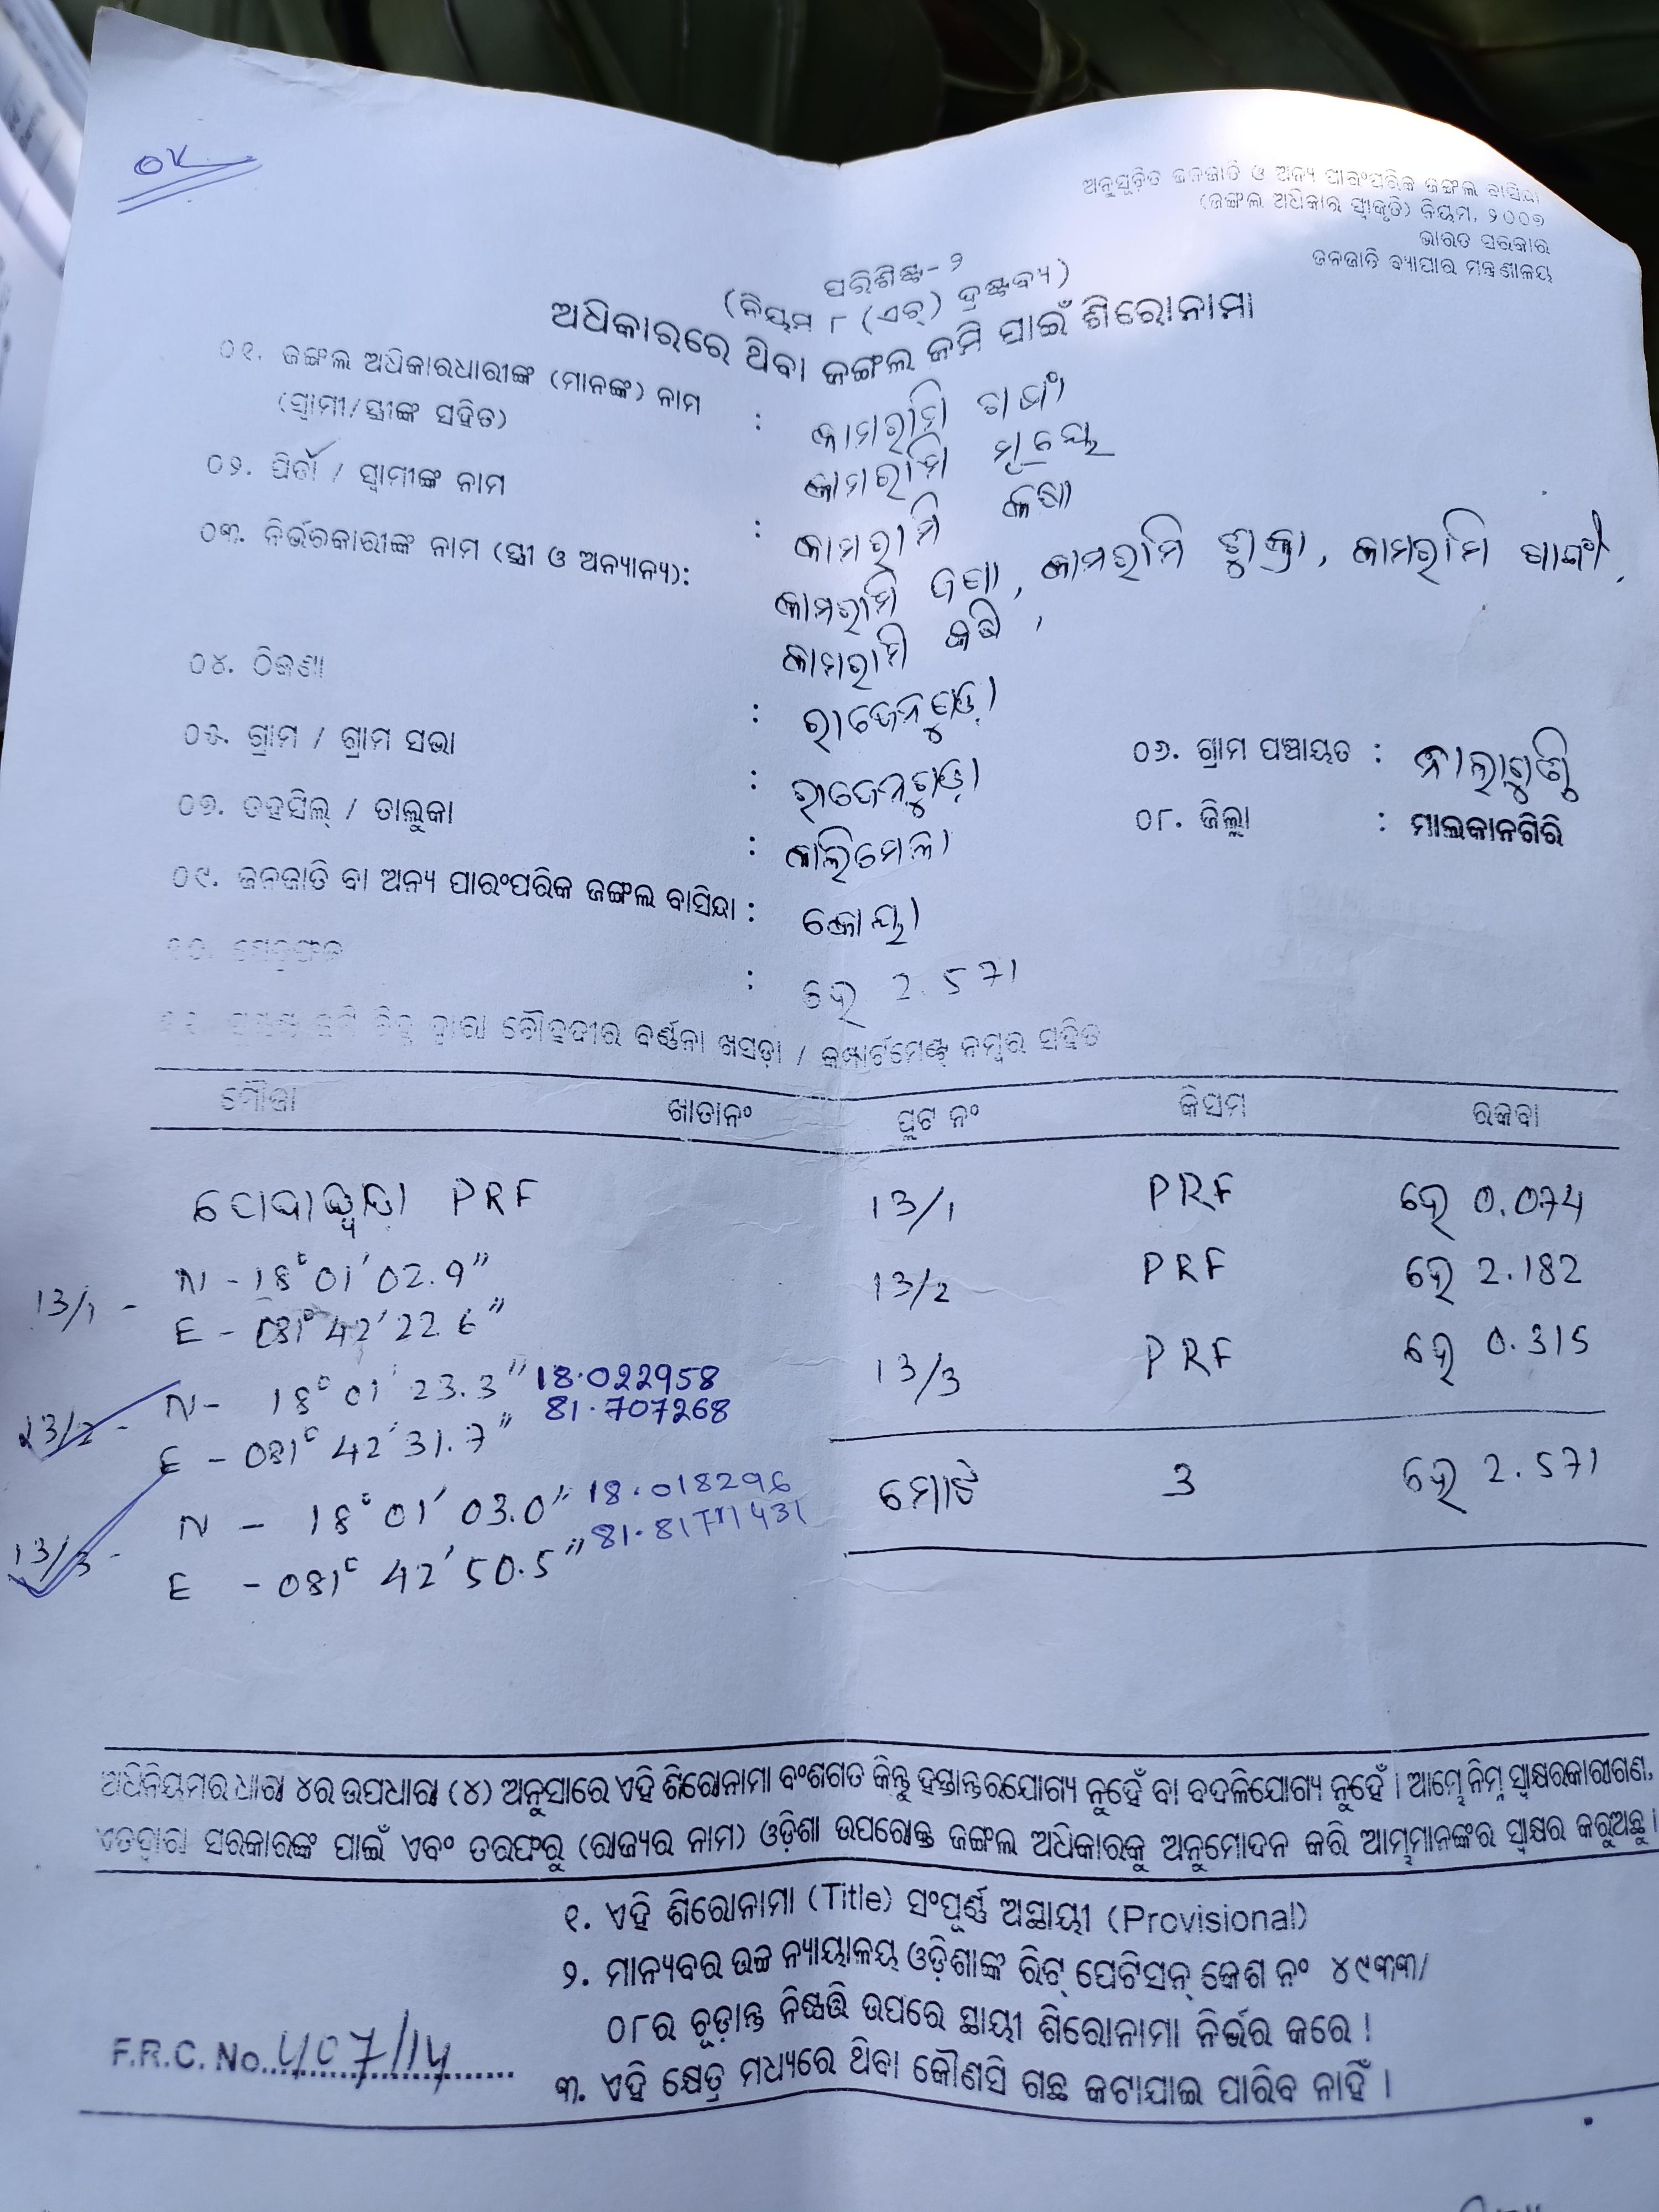 OK
ଅନୁସୂଚିତ ଜନଜାତି ଓ ଅନ୍ୟ ପାରଂପରିକ ଜଙ୍ଗଲ ବାସିନ୍ଦା
(ଜଙ୍ଗଲ ଅଧିକାର ସ୍ୱୀକୃତି) ନିୟମ, ୨୦୦୭
ଭାରତ ସରକାର
ଜନଜାତି ବ୍ୟାପାର ମନ୍ତ୍ରଣାଳୟ
ପରିଶିଷ୍ଟ-୨
(ନିୟମ ୮ (ଏଚ୍) ଦ୍ରଷ୍ଟବ୍ୟ)
ଅଧିକାରରେ ଥିବା ଜଙ୍ଗଲ ଜମି ପାଇଁ ଶିରୋନାମା
୦୧. ଜଙ୍ଗଲ ଅଧିକାରଧାରୀଙ୍କ (ମାନଙ୍କ) ନାମ : କାମରାମି
(ସ୍ୱାମୀ/ସ୍ତ୍ରୀଙ୍କ ସହିତ) କାମରାମି
୦୨. ପିତା / ସ୍ୱାମୀଙ୍କ ନାମ : କାମରାମି
୦୩. ନିର୍ଭରକାରୀଙ୍କ ନାମ (ସ୍ତ୍ରୀ ଓ ଅନ୍ୟାନ୍ୟ): କାମରାମି , କାମରାମି , କାମରାମି ,
କାମରାମି ,
୦୪. ଠିକଣା :
୦୫. ଗ୍ରାମ / ଗ୍ରାମ ସଭା : ୦୬. ଗ୍ରାମ ପଞ୍ଚାୟତ :
୦୭. ତହସିଲ୍ / ତାଲୁକା : କାଲିମେଳା ୦୮. ଜିଲ୍ଲା : ମାଲକାନଗିରି
୦୯. ଜନଜାତି ବା ଅନ୍ୟ ପାରଂପରିକ ଜଙ୍ଗଲ ବାସିନ୍ଦା : କୋୟା
୧୦. କ୍ଷେତ୍ରଫଳ : ହେ 2.571
ଦ୍ୱାରା ଚୌହଦୀର ବର୍ଣ୍ଣନା ଖସଡ଼ା / କମ୍ପାର୍ଟମେଣ୍ଟ ନମ୍ବର ସହିତ
ମୌଜା ଖାତାନଂ ପ୍ଲଟ ନଂ କିସମ ରକବା
PRF 13/1 PRF ହେ 0.074
13/1 - N - 18°01'02.9"
E - 081°42'22.6"
13/2 PRF ହେ 2.182
13/2 - N - 18°01'23.3" 18.022958
E - 081°42'31.7" 81.707268
13/3 PRF ହେ 0.315
13/3 - N - 18°01'03.0" 18.018296
E - 081°42'50.5"
ମୋଟ 3 ହେ 2.571
ଅଧିନିୟମର ଧାରା ୪ର ଉପଧାରା (୪) ଅନୁସାରେ ଏହି ଶିରୋନାମା ବଂଶଗତ କିନ୍ତୁ ହସ୍ତାନ୍ତରଯୋଗ୍ୟ ନୁହେଁ ବା ବଦଳିଯୋଗ୍ୟ ନୁହେଁ । ଆମ୍ଭେ ନିମ୍ନ ସ୍ୱାକ୍ଷରକାରୀଗଣ,
ଏତଦ୍ୱାରା ସରକାରଙ୍କ ପାଇଁ ଏବଂ ତରଫରୁ (ରାଜ୍ୟର ନାମ) ଓଡ଼ିଶା ଉପରୋକ୍ତ ଜଙ୍ଗଲ ଅଧିକାରକୁ ଅନୁମୋଦନ କରି ଆମ୍ଭମାନଙ୍କର ସ୍ୱାକ୍ଷର କରୁଅଛୁ ।
୧. ଏହି ଶିରୋନାମା (Title) ସଂପୂର୍ଣ୍ଣ ଅସ୍ଥାୟୀ (Provisional)
୨. ମାନ୍ୟବର ଉଚ୍ଚ ନ୍ୟାୟାଳୟ ଓଡ଼ିଶାଙ୍କ ରିଟ୍ ପେଟିସନ୍ କେଶ ନଂ ୪୯୩୩/
୦୮ର ଚୂଡ଼ାନ୍ତ ନିଷ୍ପତ୍ତି ଉପରେ ସ୍ଥାୟୀ ଶିରୋନାମା ନିର୍ଭର କରେ !
୩. ଏହି କ୍ଷେତ୍ର ମଧ୍ୟରେ ଥିବା କୌଣସି ଗଛ କଟାଯାଇ ପାରିବ ନାହିଁ ।
F.R.C. No. 407/14